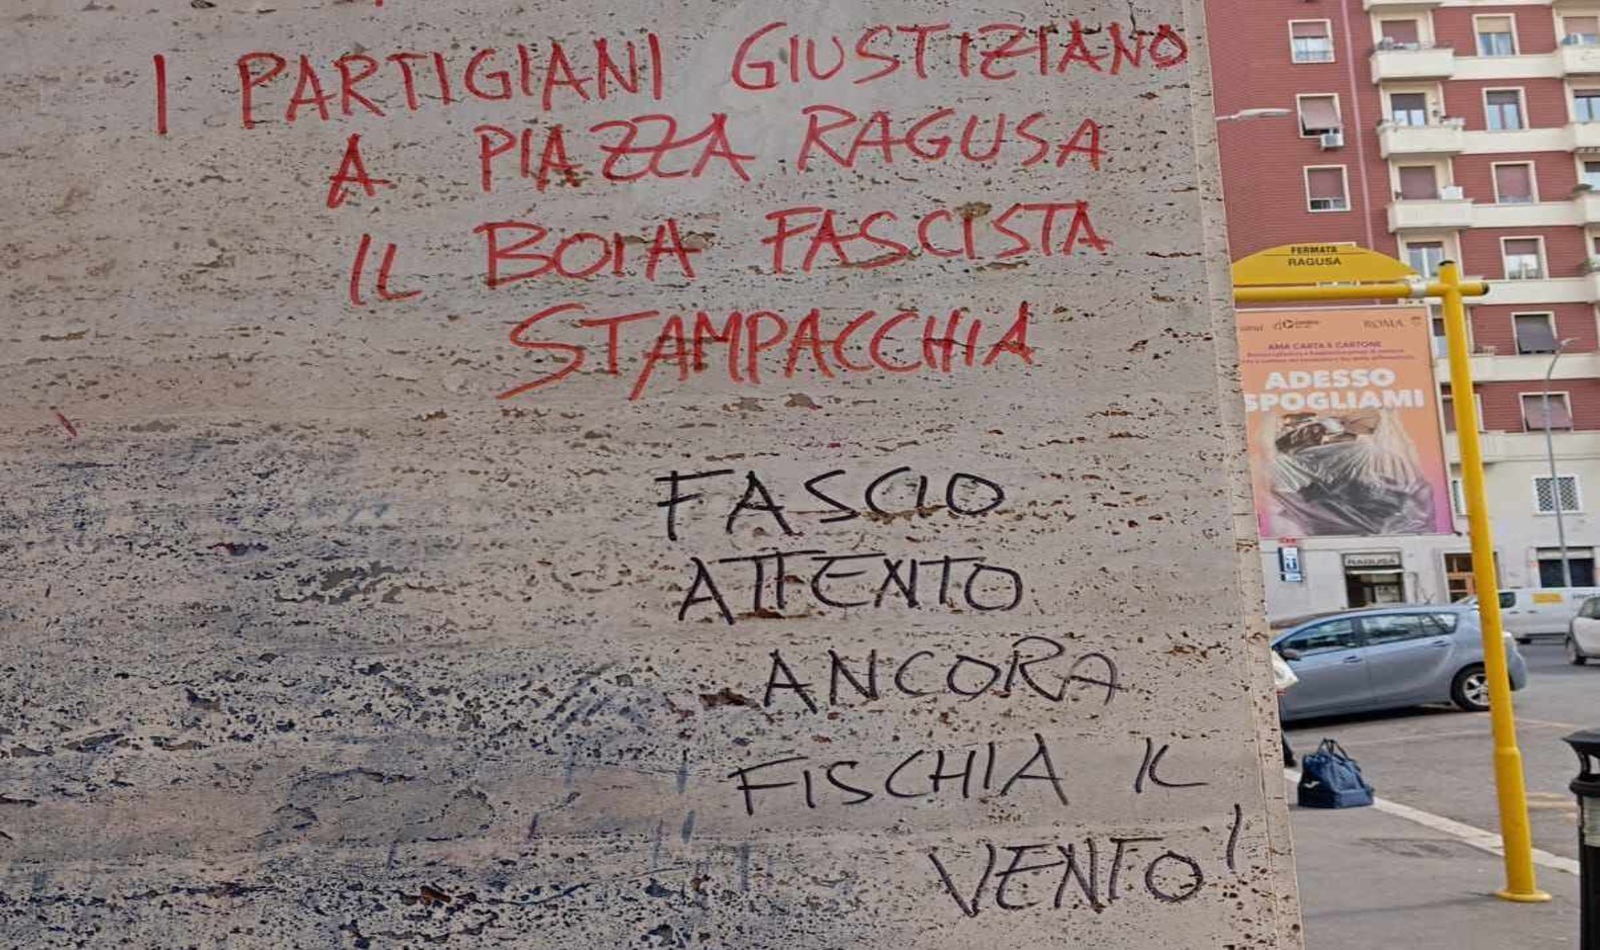 I PARTIGIANI GIUSTIZIANO
A PIAZZA RAGUSA
IL BOIA FASCISTA
STAMPACCHIA
FASCIO
ATTENTO
ANCORA
FISCHIA IL
VENTO!
FERMATA
RAGUSA
ROMA
AMA CARTA E CARTONE
ADESSO
SPOGLIAMI
RAGUSA